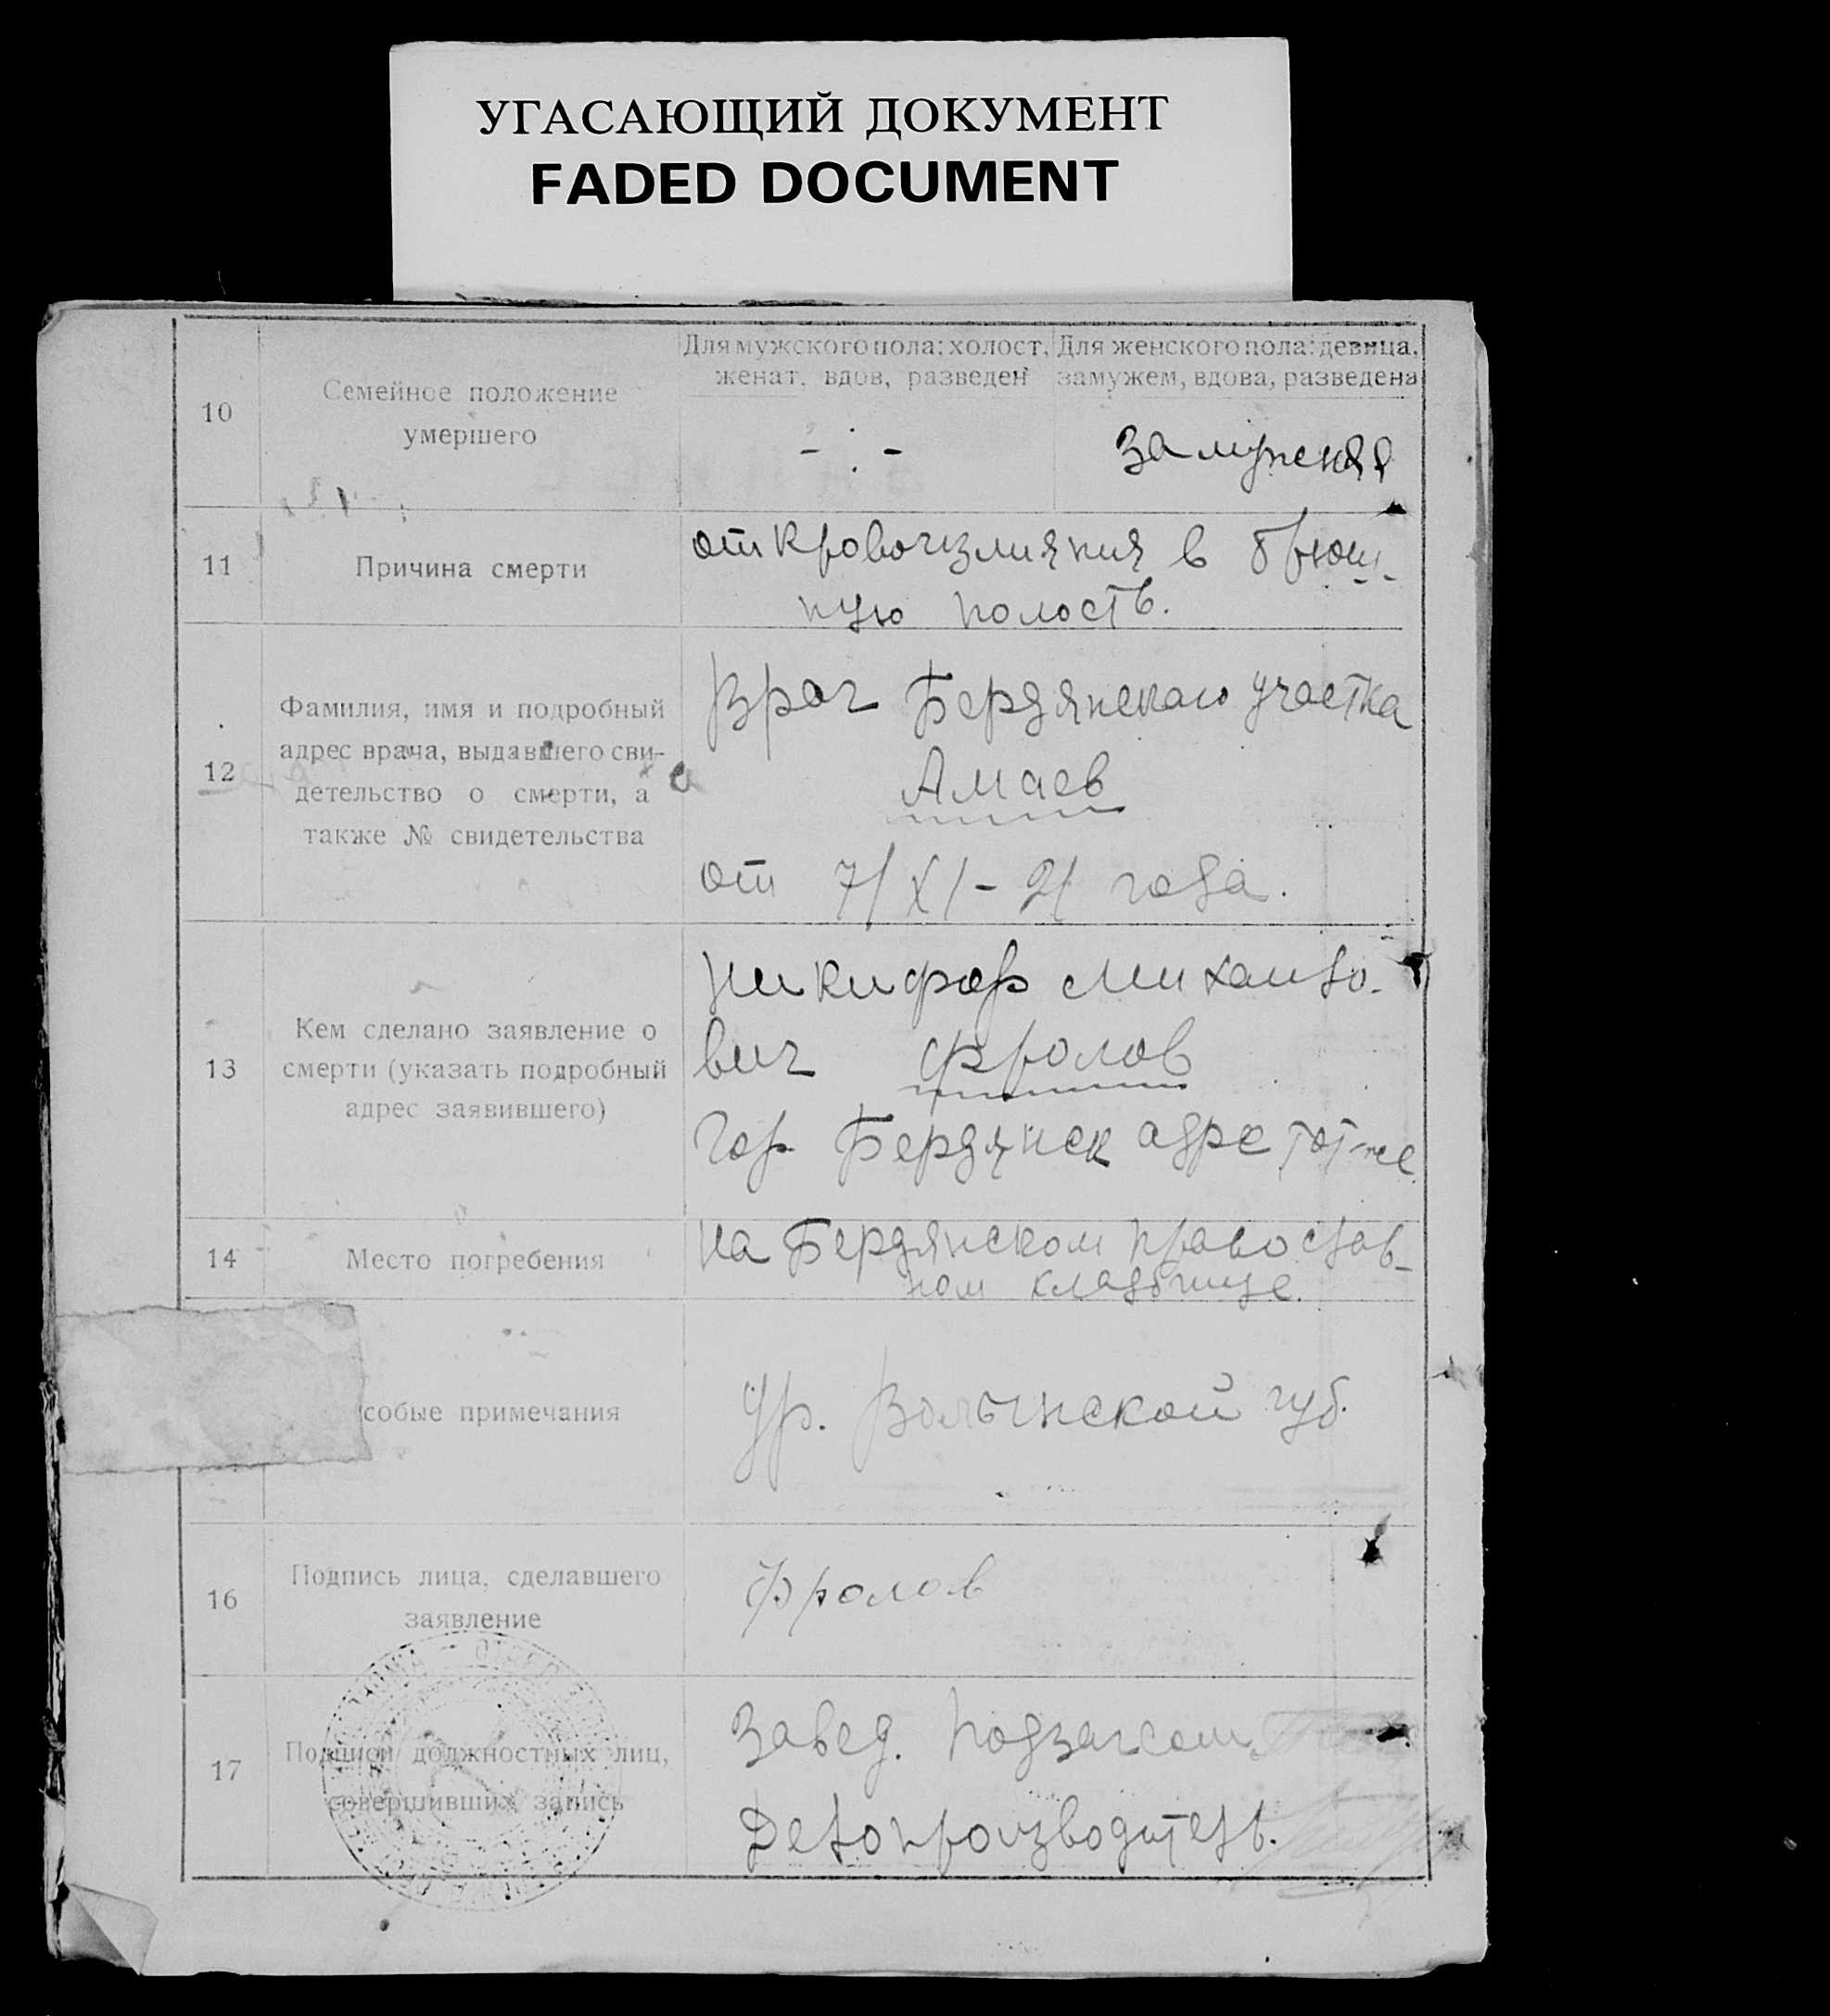 УГАСАЮЩИЙ ДОКУМЕНТ
FADED DOCUMENT
10
Семейное положение
умершего
Для мужского пола: холост,
женат, вдов, разведен
Для женского пола: девица,
замужем, вдова, разведена
- : -
замужняя
11
Причина смерти
от кровоизлияния в брюш-
ную полость.
12
Фамилия, имя и подробный
адрес врача, выдавшего сви-
детельство о смерти, а
также № свидетельства
Врач Бердянскаго участка
Амаев
от 7/XI-21 года.
13
Кем сделано заявление о
смерти (указать подробный
адрес заявившего)
Никифор Михайло-
вич Фролов
Гор. Бердянск адре тот-же
14
Место погребения
на Бердянском православ-
ном кладбище.
собые примечания
Ур. Волынской губ.
16
Подпись лица, сделавшего
заявление
Фролов
17
Подписи должностных лиц,
совершивших запись
Завед. подзагсом
Делопроизводитель.